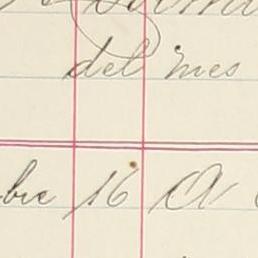 del mes
bre 16 A